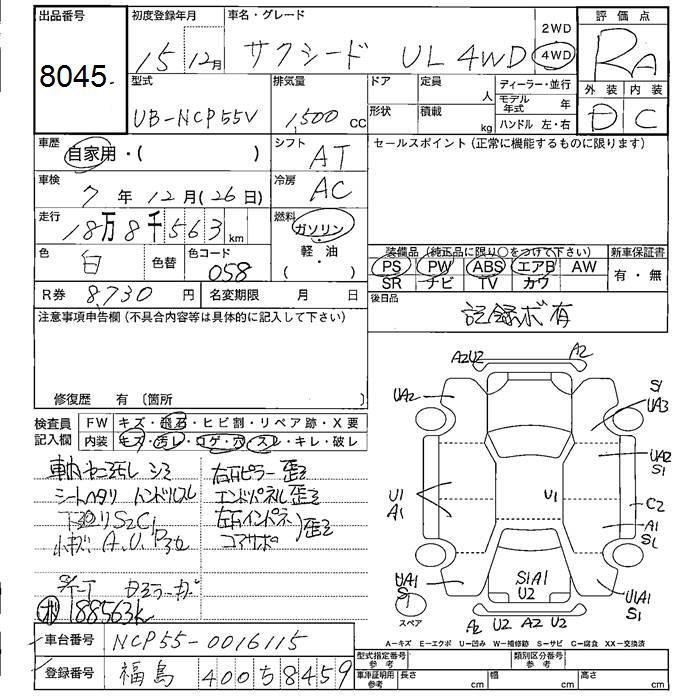 出品番号 初度登録年月 車名・グレード 2WD 評価点
8045 15 12月 サクシード UL 4WD 4WD RA
型式 排気量 ドア 定員 ディーラー・並行 外装 内装
人 モデル年式 年
UB-NCP55V 1,500 cc 形状 積載 kg ハンドル 左・右 D C
車歴 自家用・( ) シフト AT セールスポイント(正常に機能するものに限ります)
車検 7年 12月(26日) 冷房 AC
走行 18万8千563km 燃料 ガソリン・軽・油 ( )
色 白 色替 色コード 058 装備品(純正品に限り○をつけて下さい) 新車保証書
PS PW ABS エアB AW 有・無
SR ナビ TV カワ
R券 8,730円 名変期限 月 日 後日品 記録ボ有
注意事項申告欄(不具合内容等は具体的に記入して下さい)
修復歴 有 〔箇所 〕
検査員記入欄 FW キズ・飛石・ヒビ割・リペア跡・X要
内装 キズ・汚レ・コゲ・穴・スレ・キレ・破レ
車内ヤニ汚レ シミ 右Rピラー歪
シートヘタリ ハンドルスレ エンドパネル歪
下廻りS2C1 左右インパネ 歪
小キズ A.U.P32 コアサポ
188563k
車台番号 NCP55-0016115
登録番号 福島 400 5 8459
A2U2 A2
UA2 S1 UA3
UA2 S1
U1 A1 U1 C2
A1 S1
UA1 S1 S1A1 U2 UA1 S1
スペア
A2 U2 A2 U2
A-キズ E-エクボ U-凹み W-補修跡 S-サビ C-腐食 XX-交換済
型式指定番号 参考 類別区分番号 参考
車庫証明用 参考 長さ cm 幅 cm 高さ cm